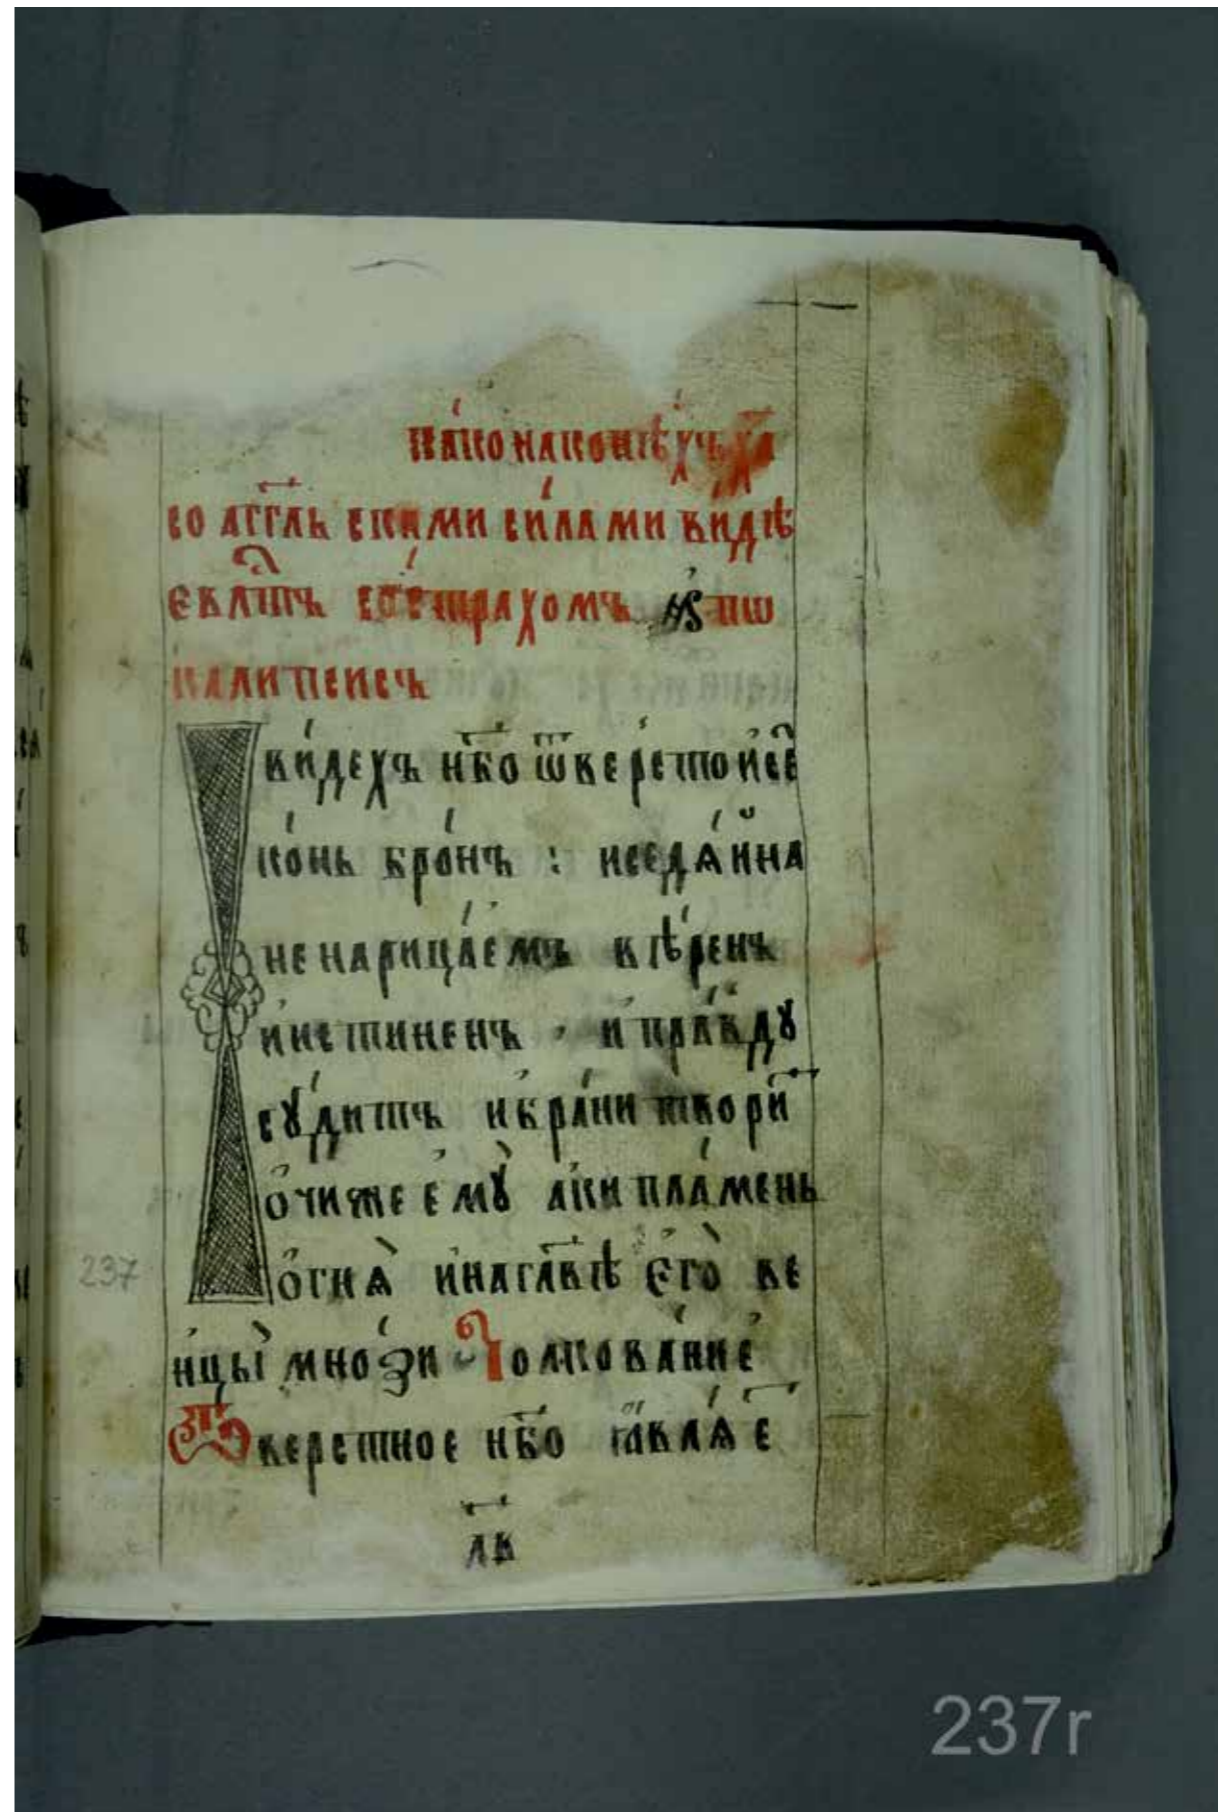 ка́ко на конѣ́хъ хⷭ҇а
со аг҃гльскими си́лами ви́дѣ
євл҃и́стъ со стра́хомъ н҃ѕ пѡ
калипсисъ
И ви́дехъ нб҃о ѿве́рсто и҆ се҆
ко́нь бро́нъ : и седѧ́й на
не нарица́емъ вѣ́ренъ
и҆стиненъ , и҆ пра́вдꙋ
сꙋ́дитъ и҆ бра́ни твори́т
о҆чи же є҆мꙋ̀ аки пла́мень
о҆гнѧ̀ и҆ на гл҃авѣ є҆го̀ ве
нцы̀ мно́зи Толкова́ние҆
Ѿверстное нб҃о ꙗ҆влѧ́є҆т
л҃в
237
237r